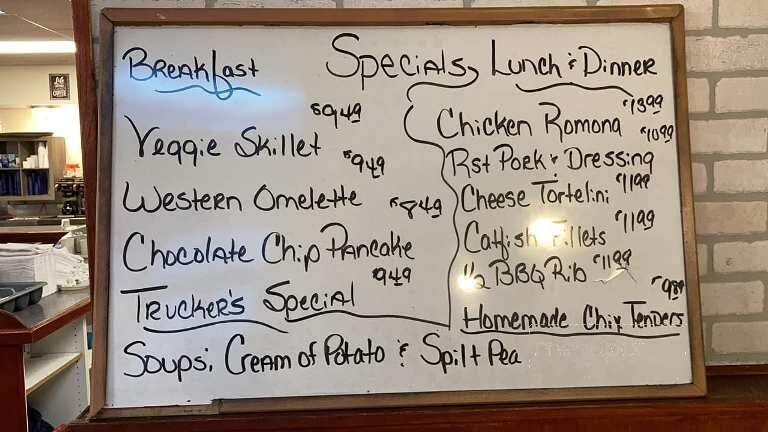 Breakfast
Specials
$9.49
Veggie Skillet
$9.49
Western Omelette
$8.49
Chocolate Chip Pancake
9.49
Trucker's Special
Lunch & Dinner
$13.99
Chicken Romona
$10.99
Rst Pork & Dressing
$11.99
Cheese Tortelini
$11.99
Catfish Fillets
$11.99
1/2 BBQ Rib
Homemade Chix Tenders
Soups: Cream of Potato & Spilt Pea